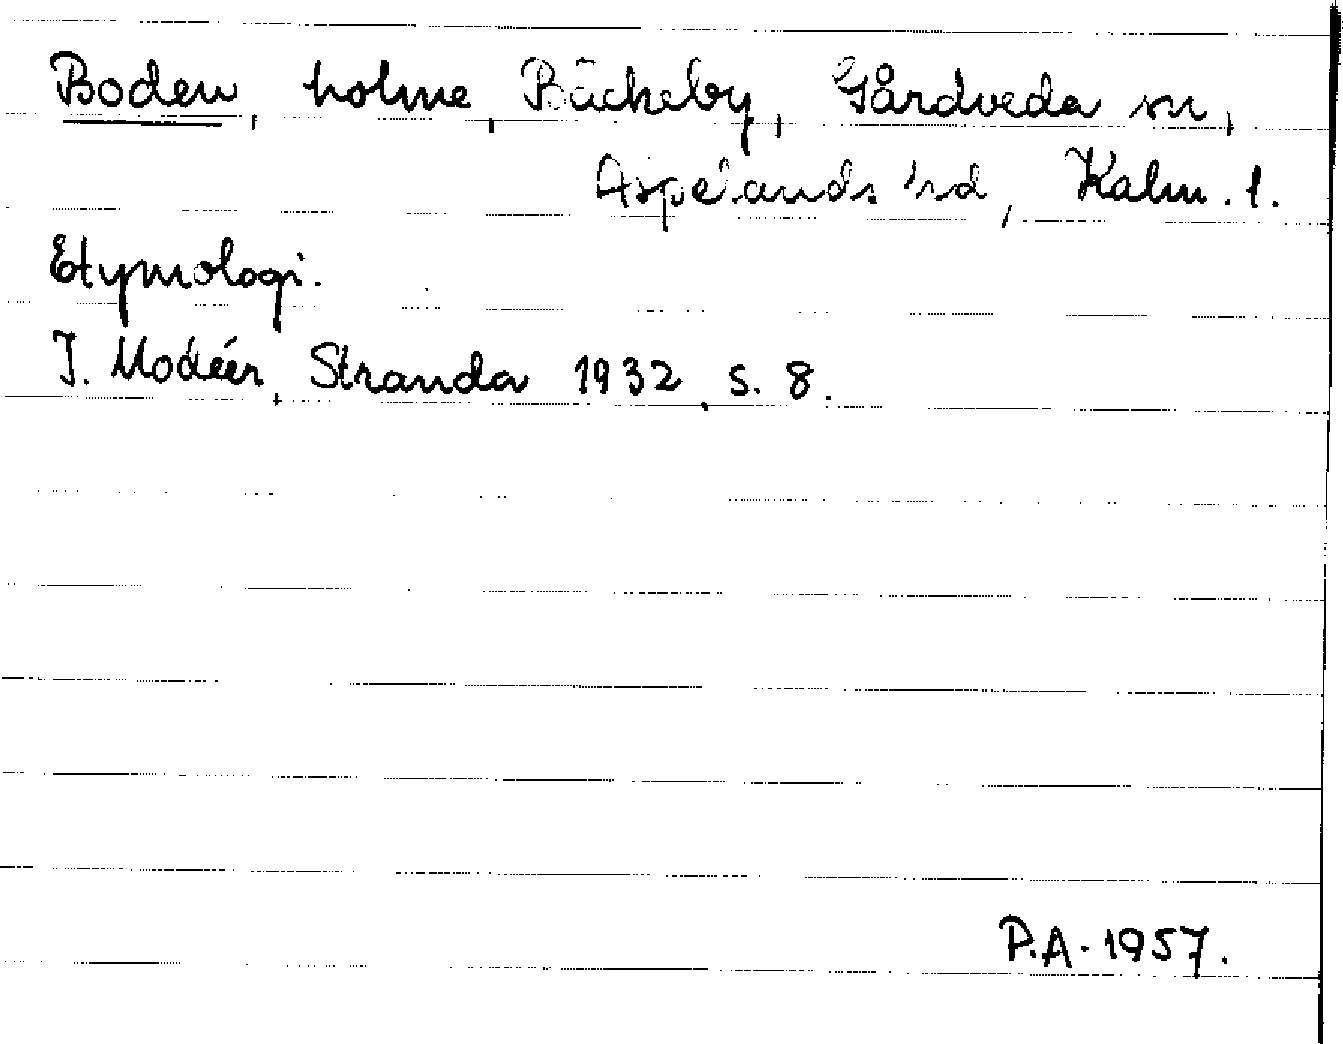 Boden, holme, Bäckeby, Gårdveda sn,
Aspelands hd, Kalm. l.
Etymologi.
I. Modéer, Stranda 1932, s. 8.
P.A. 1957.